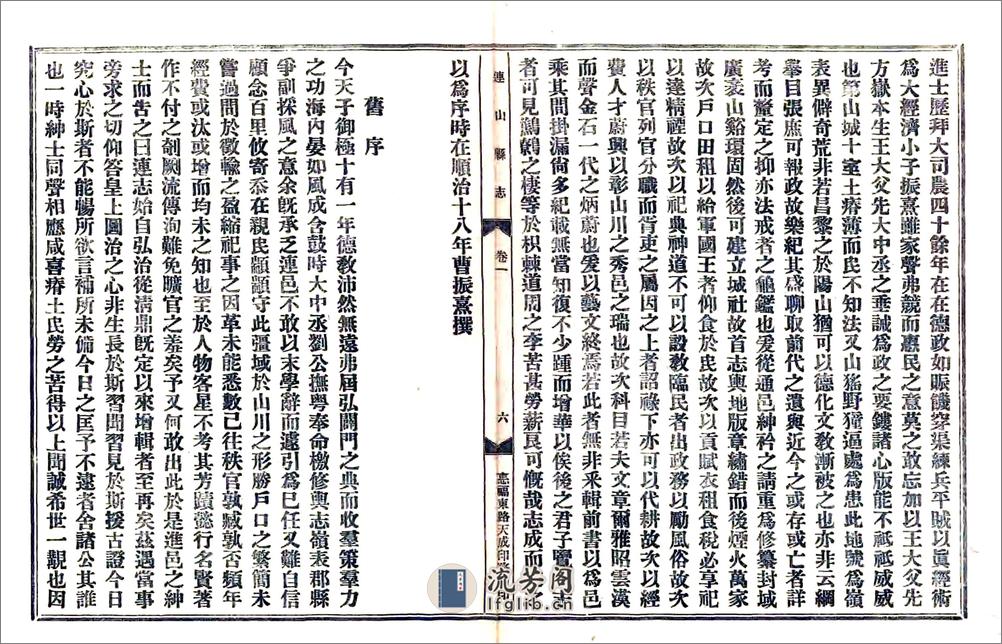 進士歷拜大司農四十餘年在在德政如賑饑穿渠練兵平賊以眞經術
為大經濟小子振熹雖家聲弗競而憲民之意莫之敢忘加以王大父先
方嶽本生王大父先大中丞之垂誠為政之要鏤諸心版能不祗祗威威
也第山城十室土瘠薄而民不知法又山猺野獞逼處為患此地號為嶺
表異僻奇荒非若昌黎之於陽山猶可以德化文教漸被之也亦非云綱
舉目張庶可報政故樂紀其盛聊取前代之遺與近今之或存或亡者詳
考而釐定之抑亦法戒者之龜鑑也爰從通邑紳衿之請重為修纂封域
廣袤山谿環固然後可建立城社故首志輿地版章繡錯而後煙火萬家
故次戶口田租以給軍國王者仰食於民故次以貢賦衣租食稅必享祀
以達精禋故次以祀典神道不可以設敎臨民者出政務以勵風俗故次
以秩官列官分職而胥吏之屬因之上者詔祿下亦可以代耕故次以經
費人才蔚興以彰山川之秀邑之瑞也故次科目若夫文章爾雅昭雲漢
而聲金石一代之炳蔚也爰以藝文終焉若此者無非釆輯前書以為邑
乘其間掛漏尚多紀載無當知復不少踵而增華以俟後之君子覽
者可見鸞鷯之棲等於枳棘道周之李苦甚勞薪良可慨哉志成而
以為序時在順治十八年曹振熹撰
連山縣志
卷一
六
惠福東路天成印
舊序
今天子御極十有一年德敎沛然無遠弗屆弘闢門之典而收羣策羣力
之功海內晏如風成含鼓時大中丞劉公撫粵奉命檄修輿志嶺表郡縣
爭副採風之意余旣承乏連邑不敢以末學辭而遽引為巳任又難自信
顧念百里攸寄忝在親民顓顓守此疆域於山川之形勝戶口之繁簡未
嘗過問於徵輸之盈縮祀事之因革未能悉數已往秩官孰臧孰否頻年
經費或汰或增而均未之知也至於人物客星不考其芳躅懿行名賢著
作不付之剞劂流傳洵難免曠官之羞矣予又何敢出此於是進邑之紳
士而告之曰連志始自弘治從淸鼎旣定以來增輯者至再矣茲遇當事
旁求之切仰答皇上圖治之心非生長於斯習聞習見於斯援古證今日
究心於斯者不能暢所欲言補所未備今日之匡予不逮者舍諸公其誰
也一時紳士同聲相應咸喜瘠土民勞之苦得以上聞誠希世一覯也因
流芳阁
lfglib.cn